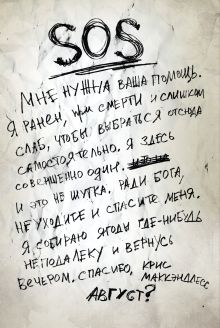 SOS
МНЕ НУЖНА ВАША ПОМОЩЬ.
Я РАНЕН, ПРИ СМЕРТИ И СЛИШКОМ
СЛАБ, ЧТОБЫ ВЫБРАТЬСЯ ОТСЮДА
САМОСТОЯТЕЛЬНО. Я ЗДЕСЬ
СОВЕРШЕННО ОДИН.
И ЭТО НЕ ШУТКА. РАДИ БОГА,
НЕ УХОДИТЕ И СПАСИТЕ МЕНЯ.
Я СОБИРАЮ ЯГОДЫ ГДЕ-НИБУДЬ
НЕПОДАЛЕКУ И ВЕРНУСЬ
ВЕЧЕРОМ. СПАСИБО, КРИС
МАККЭНДЛЕСС
АВГУСТ?